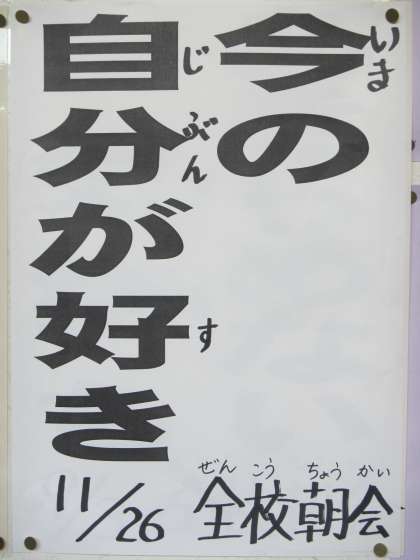 今の
いま
自分が好き
じぶん
す
11/26 全校朝会
ぜんこうちょうかい